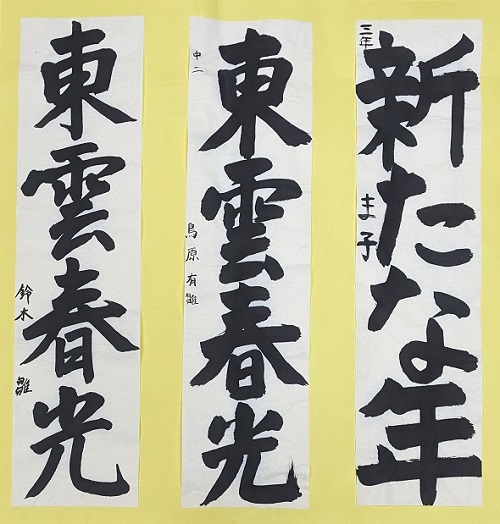 新たな年
三年
ま子
東雲春光
中二
鳥原有
東雲春光
鈴木